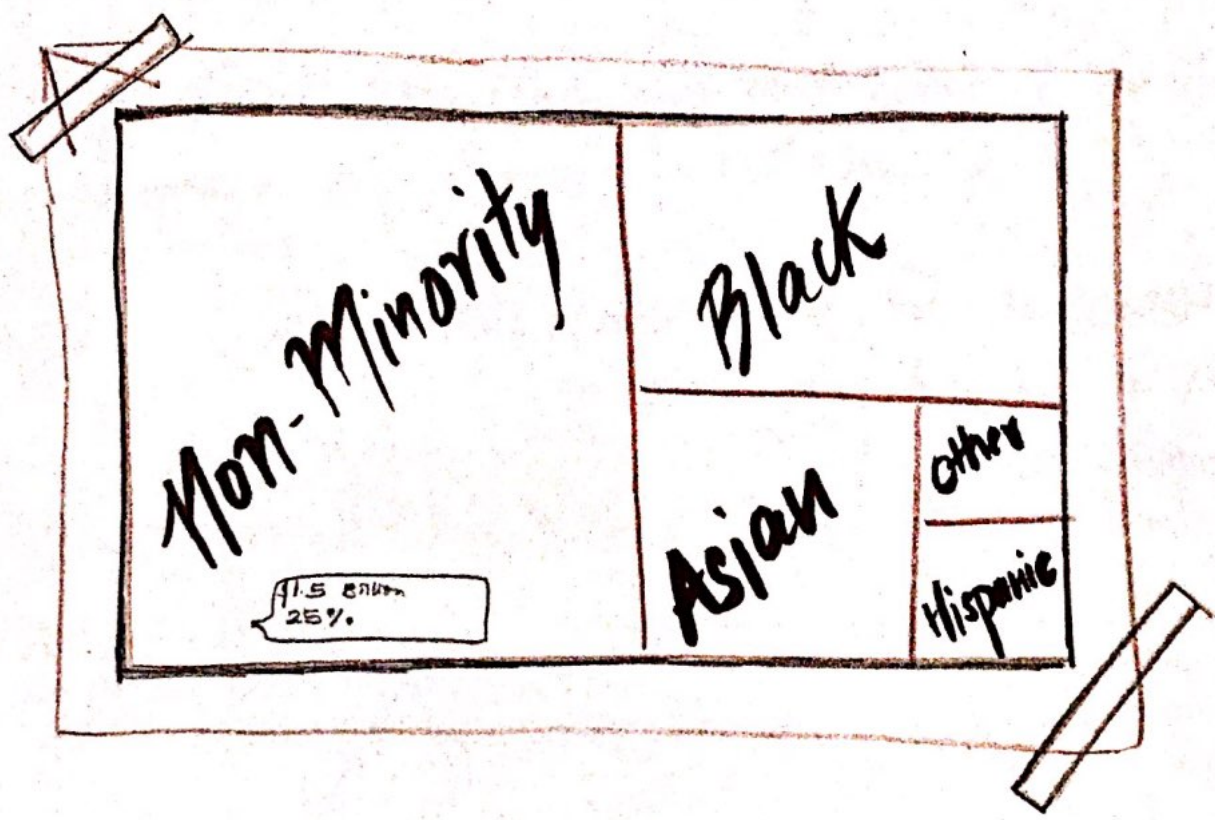 Non-Minority
$1.5 Billion
25%.
Black
Asian
other
Hispanic